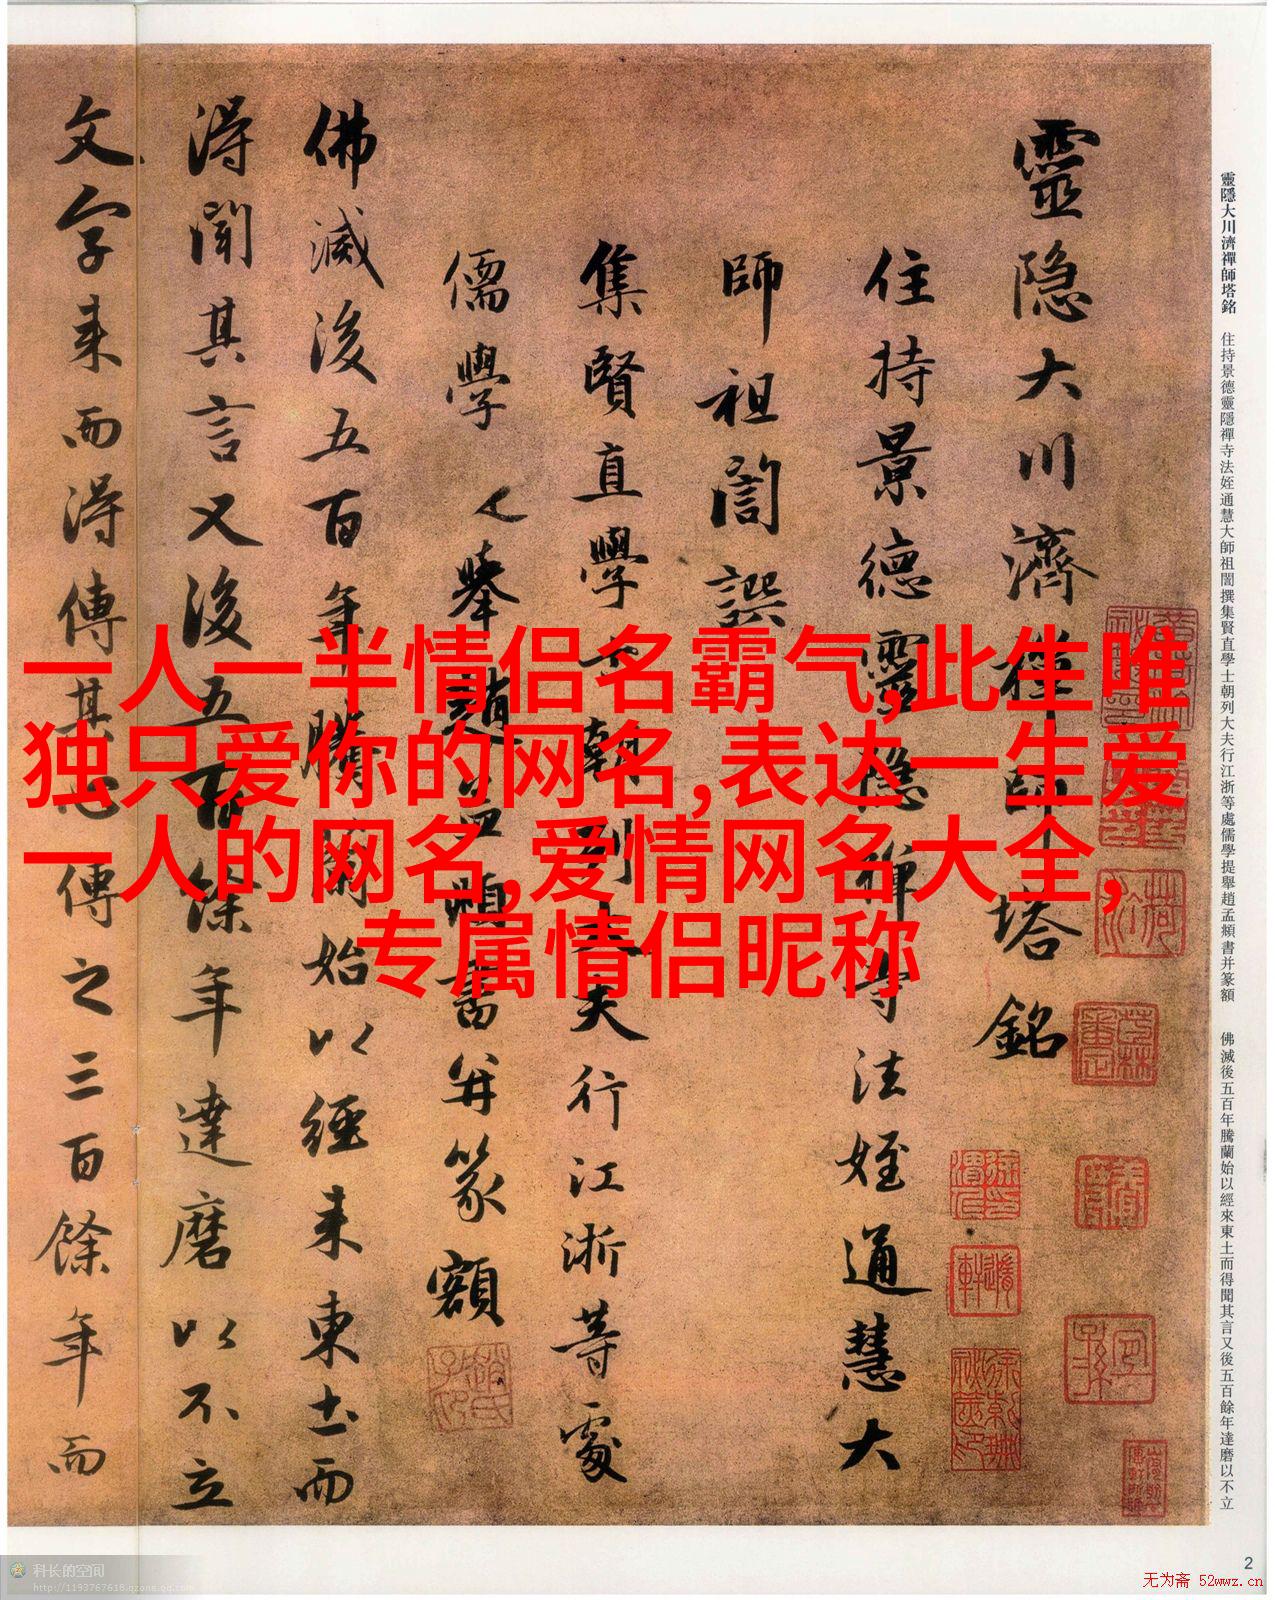 一人一半情侣名霸气,此生唯
独只爱你的网名,表达一生爱
一人的网名,爱情网名大全,
专属情侣昵称
靈隱大川濟禪師塔銘 住持景德靈隱禪寺法姪通慧大師祖誾撰集賢直學士朝列大夫行江浙等處儒學提舉趙孟頫書并篆額 佛滅後五百年騰蘭始以經來東土而得聞其言又後五百餘年達磨以不立
靈隐大川濟禪師塔銘
住持景德靈隐禅寺法姪通慧大
師祖誾譔
集賢直學士朝列大夫行江浙等處
儒學舉趙孟頫書并篆額
佛滅後五百年騰蘭始以經来東土而
得聞其言又後五百餘年達磨以不立
文字来而得傳其心傳之三百餘年而
2
科长的空间
http://1193767618.qzone.qq.com
无为斋 52wwz.cn